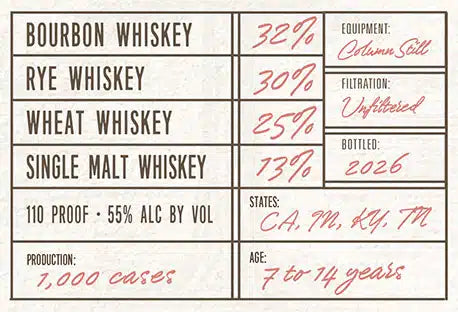 BOURBON WHISKEY 32%
RYE WHISKEY 30%
WHEAT WHISKEY 25%
SINGLE MALT WHISKEY 13%
110 PROOF • 55% ALC BY VOL
PRODUCTION:
1,000 cases
EQUIPMENT:
Column Still
FILTRATION:
Unfiltered
BOTTLED:
2026
STATES:
CA, IN, KY, TN
AGE:
7 to 14 years